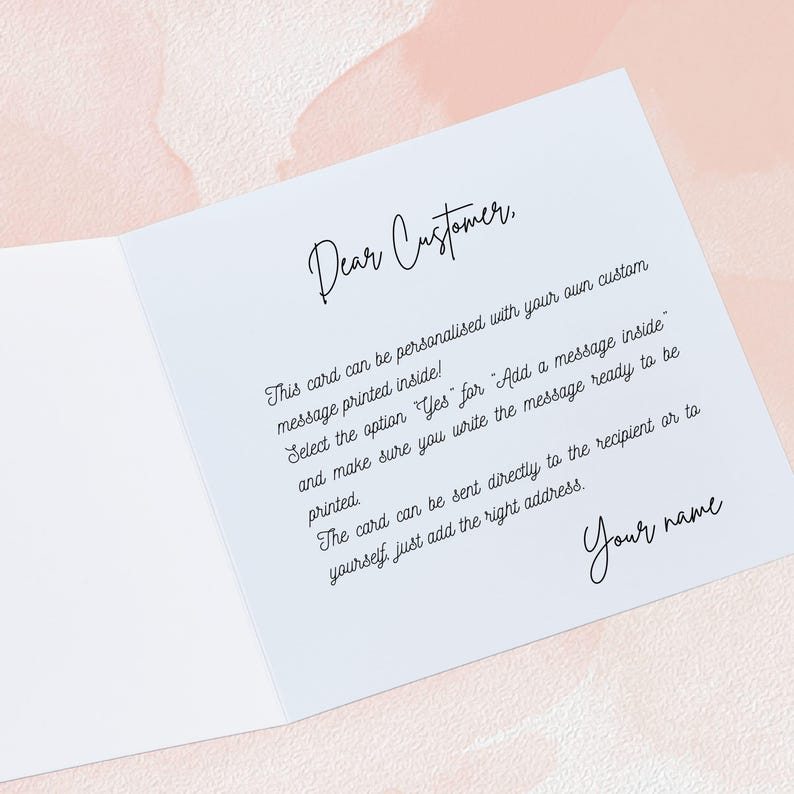 Dear Customer,
This card can be personalised with your own custom
message printed inside!
Select the option "Yes" for "Add a message inside"
and make sure you write the message ready to be
printed.
The card can be sent directly to the recipient or to
yourself, just add the right address.
Your name